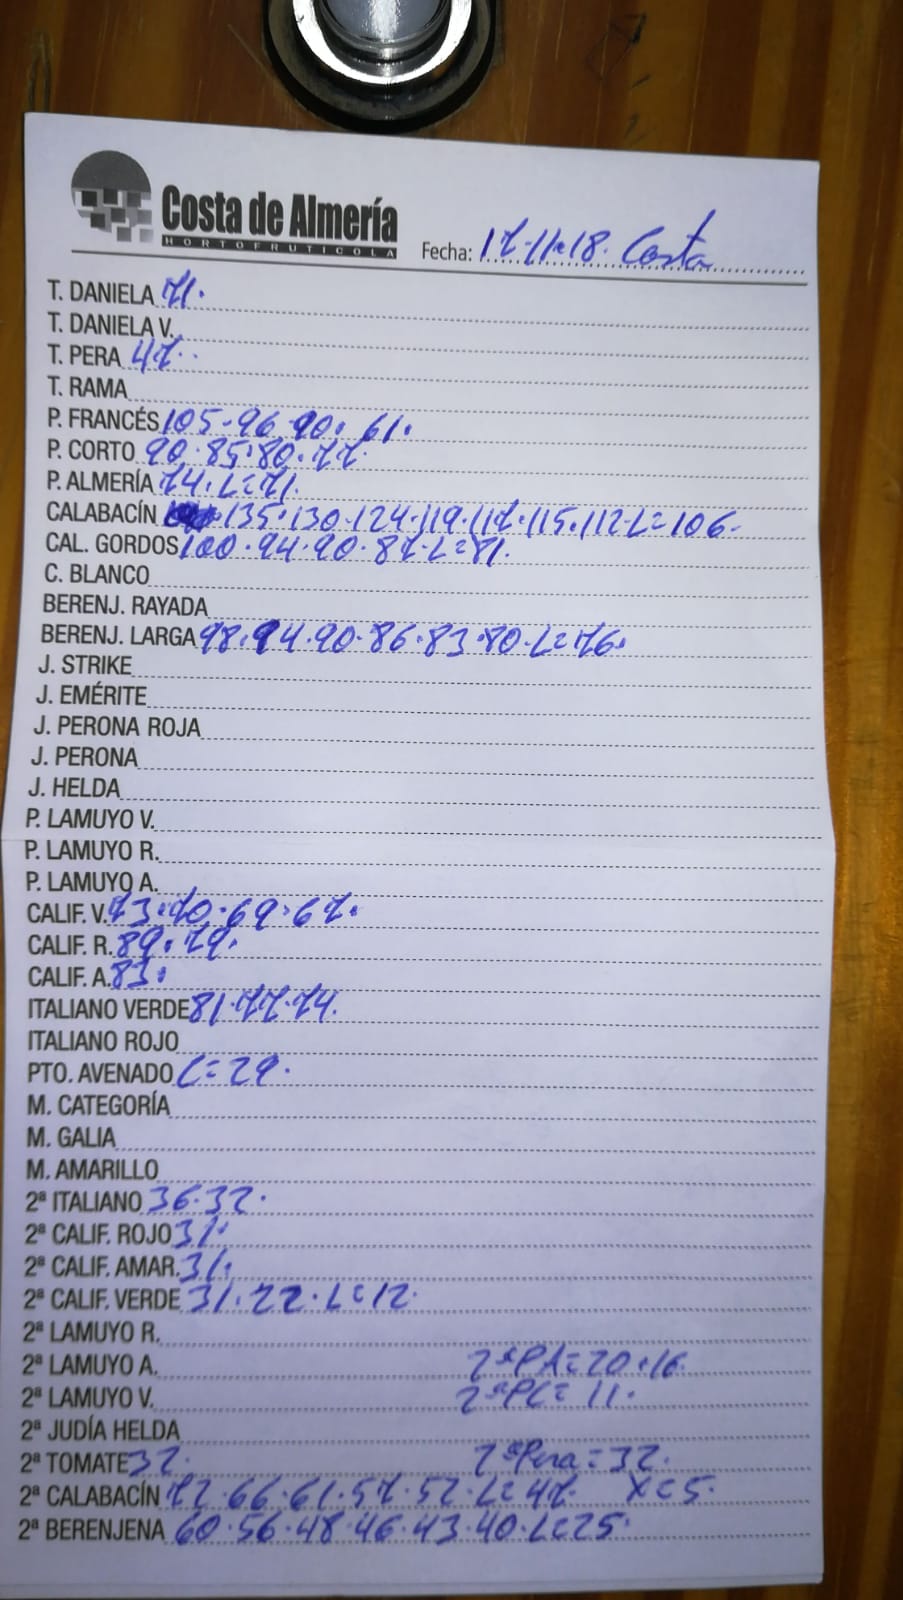 Costa de Almería
HORTOFRUTICOLA
Fecha: 17-11-18. Costa
T. DANIELA 71.
T. DANIELA V.
T. PERA 47.
T. RAMA
P. FRANCÉS 105-96-90. 61.
P. CORTO 90.85.80.77.
P. ALMERÍA 74. L=71.
CALABACÍN 135.130.124.119.117.115.112-L=106-
CAL. GORDOS 100.94.90.87-L=81.
C. BLANCO
BERENJ. RAYADA
BERENJ. LARGA 98.94.90.86.83.80.L=76.
J. STRIKE
J. EMÉRITE
J. PERONA ROJA
J. PERONA
J. HELDA
P. LAMUYO V.
P. LAMUYO R.
P. LAMUYO A.
CALIF. V. 73.70.69.67.
CALIF. R. 89.79.
CALIF. A. 83.
ITALIANO VERDE 81.77.74.
ITALIANO ROJO
PTO. AVENADO L=29.
M. CATEGORÍA
M. GALIA
M. AMARILLO
2ª ITALIANO 36.32.
2ª CALIF. ROJO 31.
2ª CALIF. AMAR. 31.
2ª CALIF. VERDE 31.22.L=12.
2ª LAMUYO R.
2ª LAMUYO A. 2ªPA=20.16.
2ª LAMUYO V. 2ªPC=11.
2ª JUDÍA HELDA
2ª TOMATE 32. 2ªPera=32.
2ª CALABACÍN 72.66.61.57.52.L=47. X=5.
2ª BERENJENA 60.56.48.46.43.40.L=25.